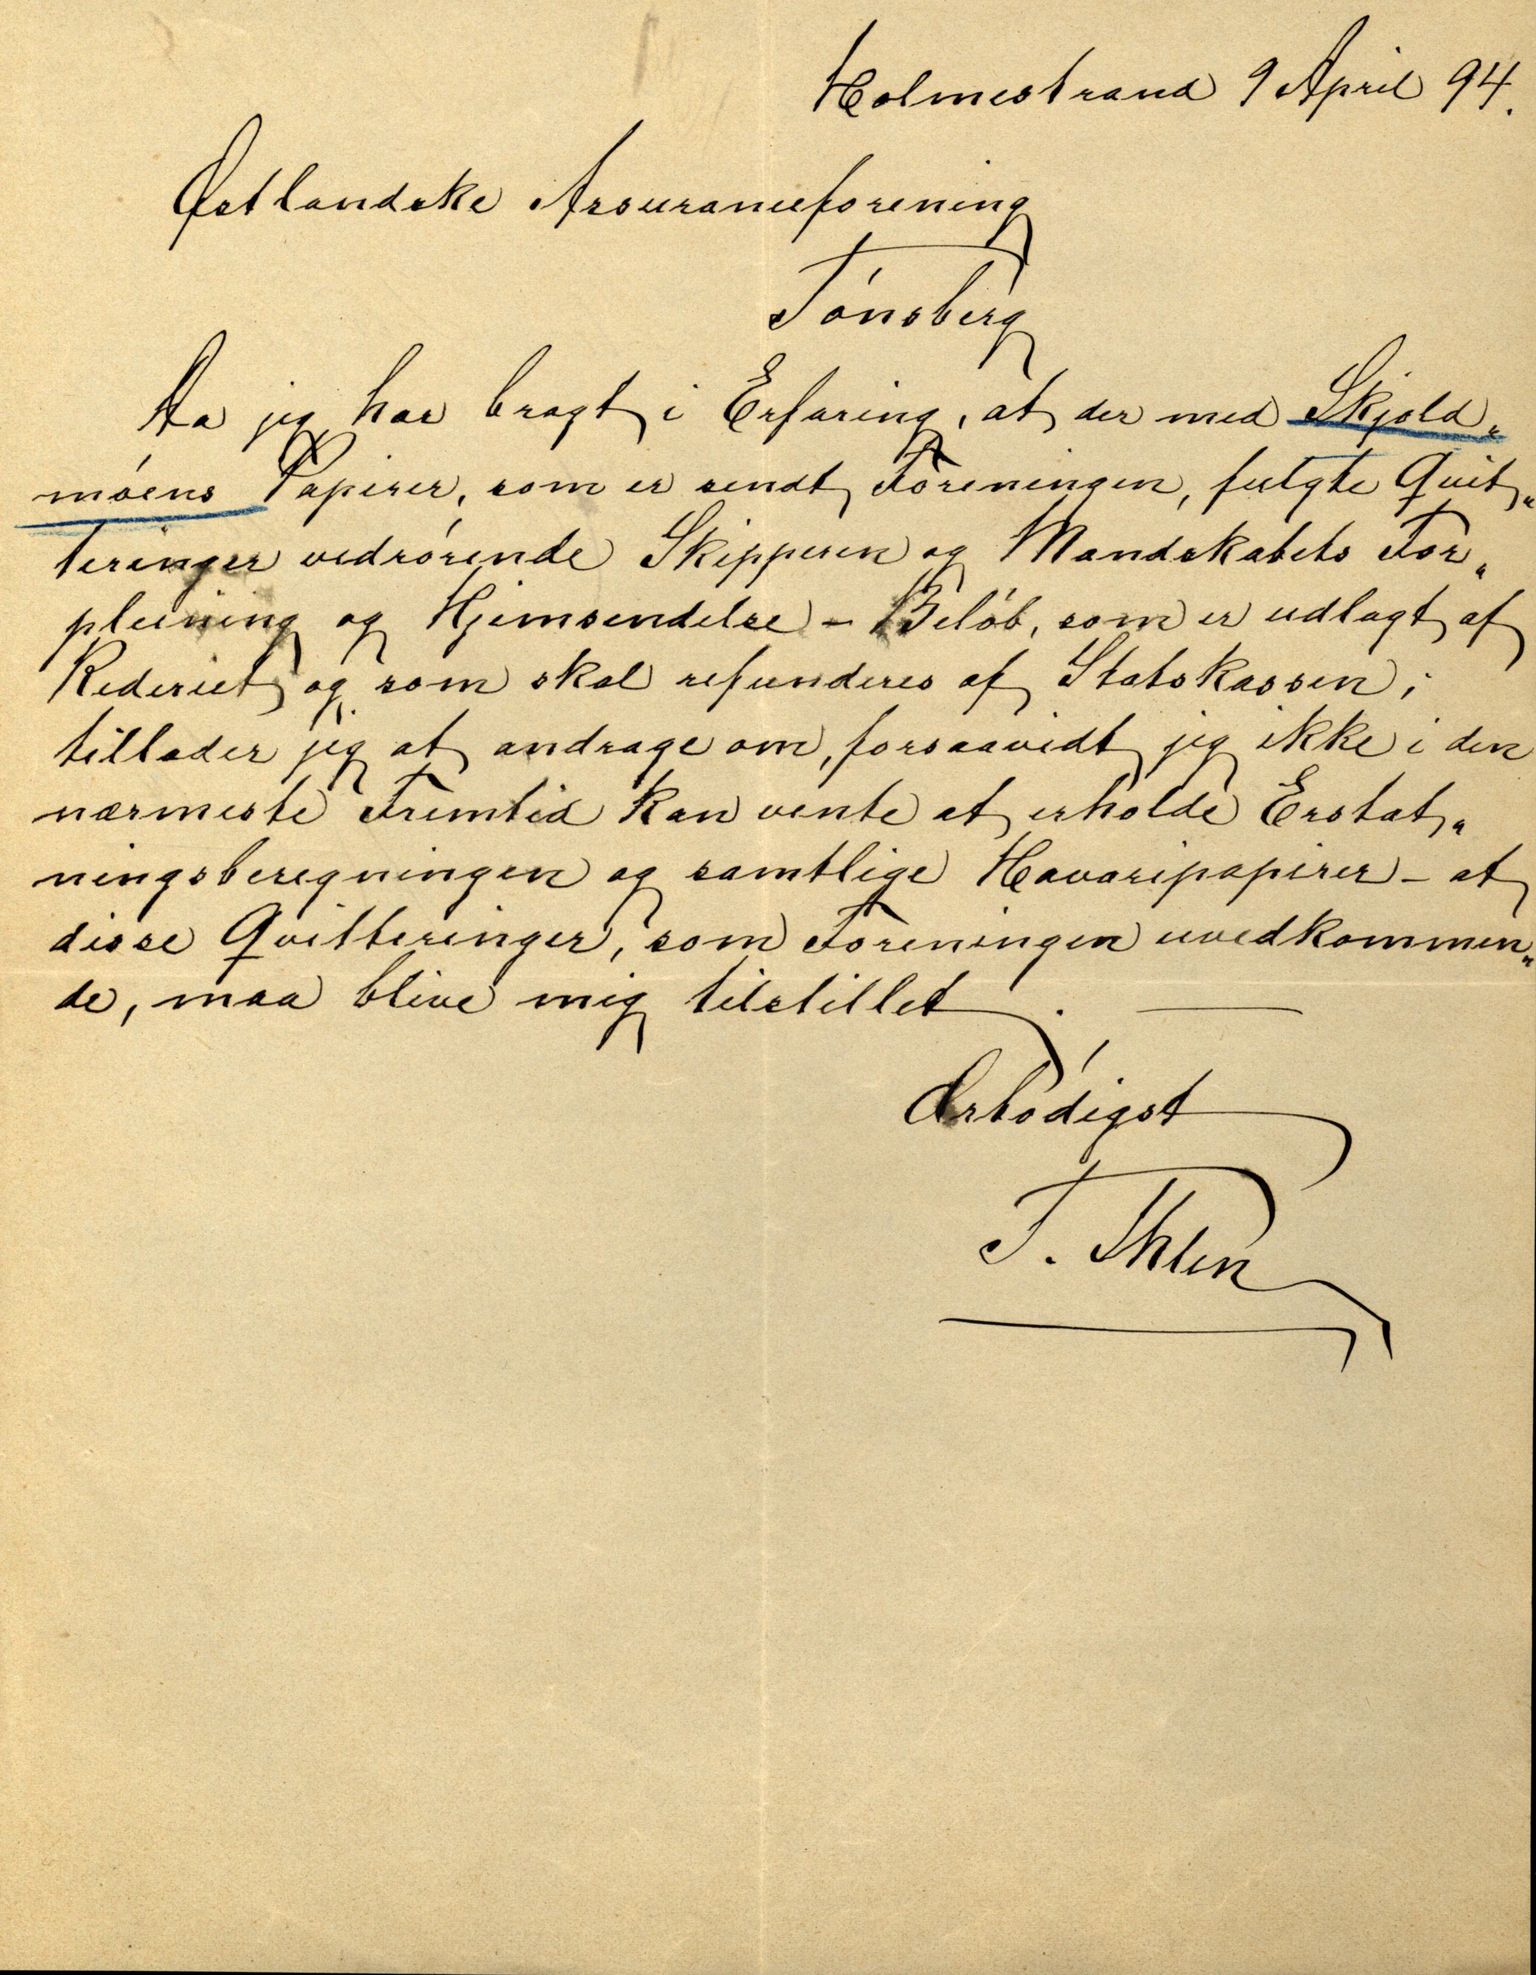 Holmestrand 9 April 94.
Østlandske Assuranceforening
Tónsberg
Da jeg har bragt i Erfaring, at der med Skjold„
móens Papirer, som er sendt Foreningen, fulgte Qvit„
teringer vedrórende Skipperen og Mandskabets For„
pleining og Hjemsendelse – Belób, som er udlagt af
Rederiet og som skal refunderes af Statskassen;
tillader jeg at andrage om, forsaavidt jeg ikke i den
nærmeste Fremtid kan vente at erholde Erstat„
ningsberegningen og samtlige Havaripapirer – at
disse Qvitteringer, som Foreningen uvedkommen„
de, maa blive mig tilstillet.
Ærbódigst
T. Ihlen